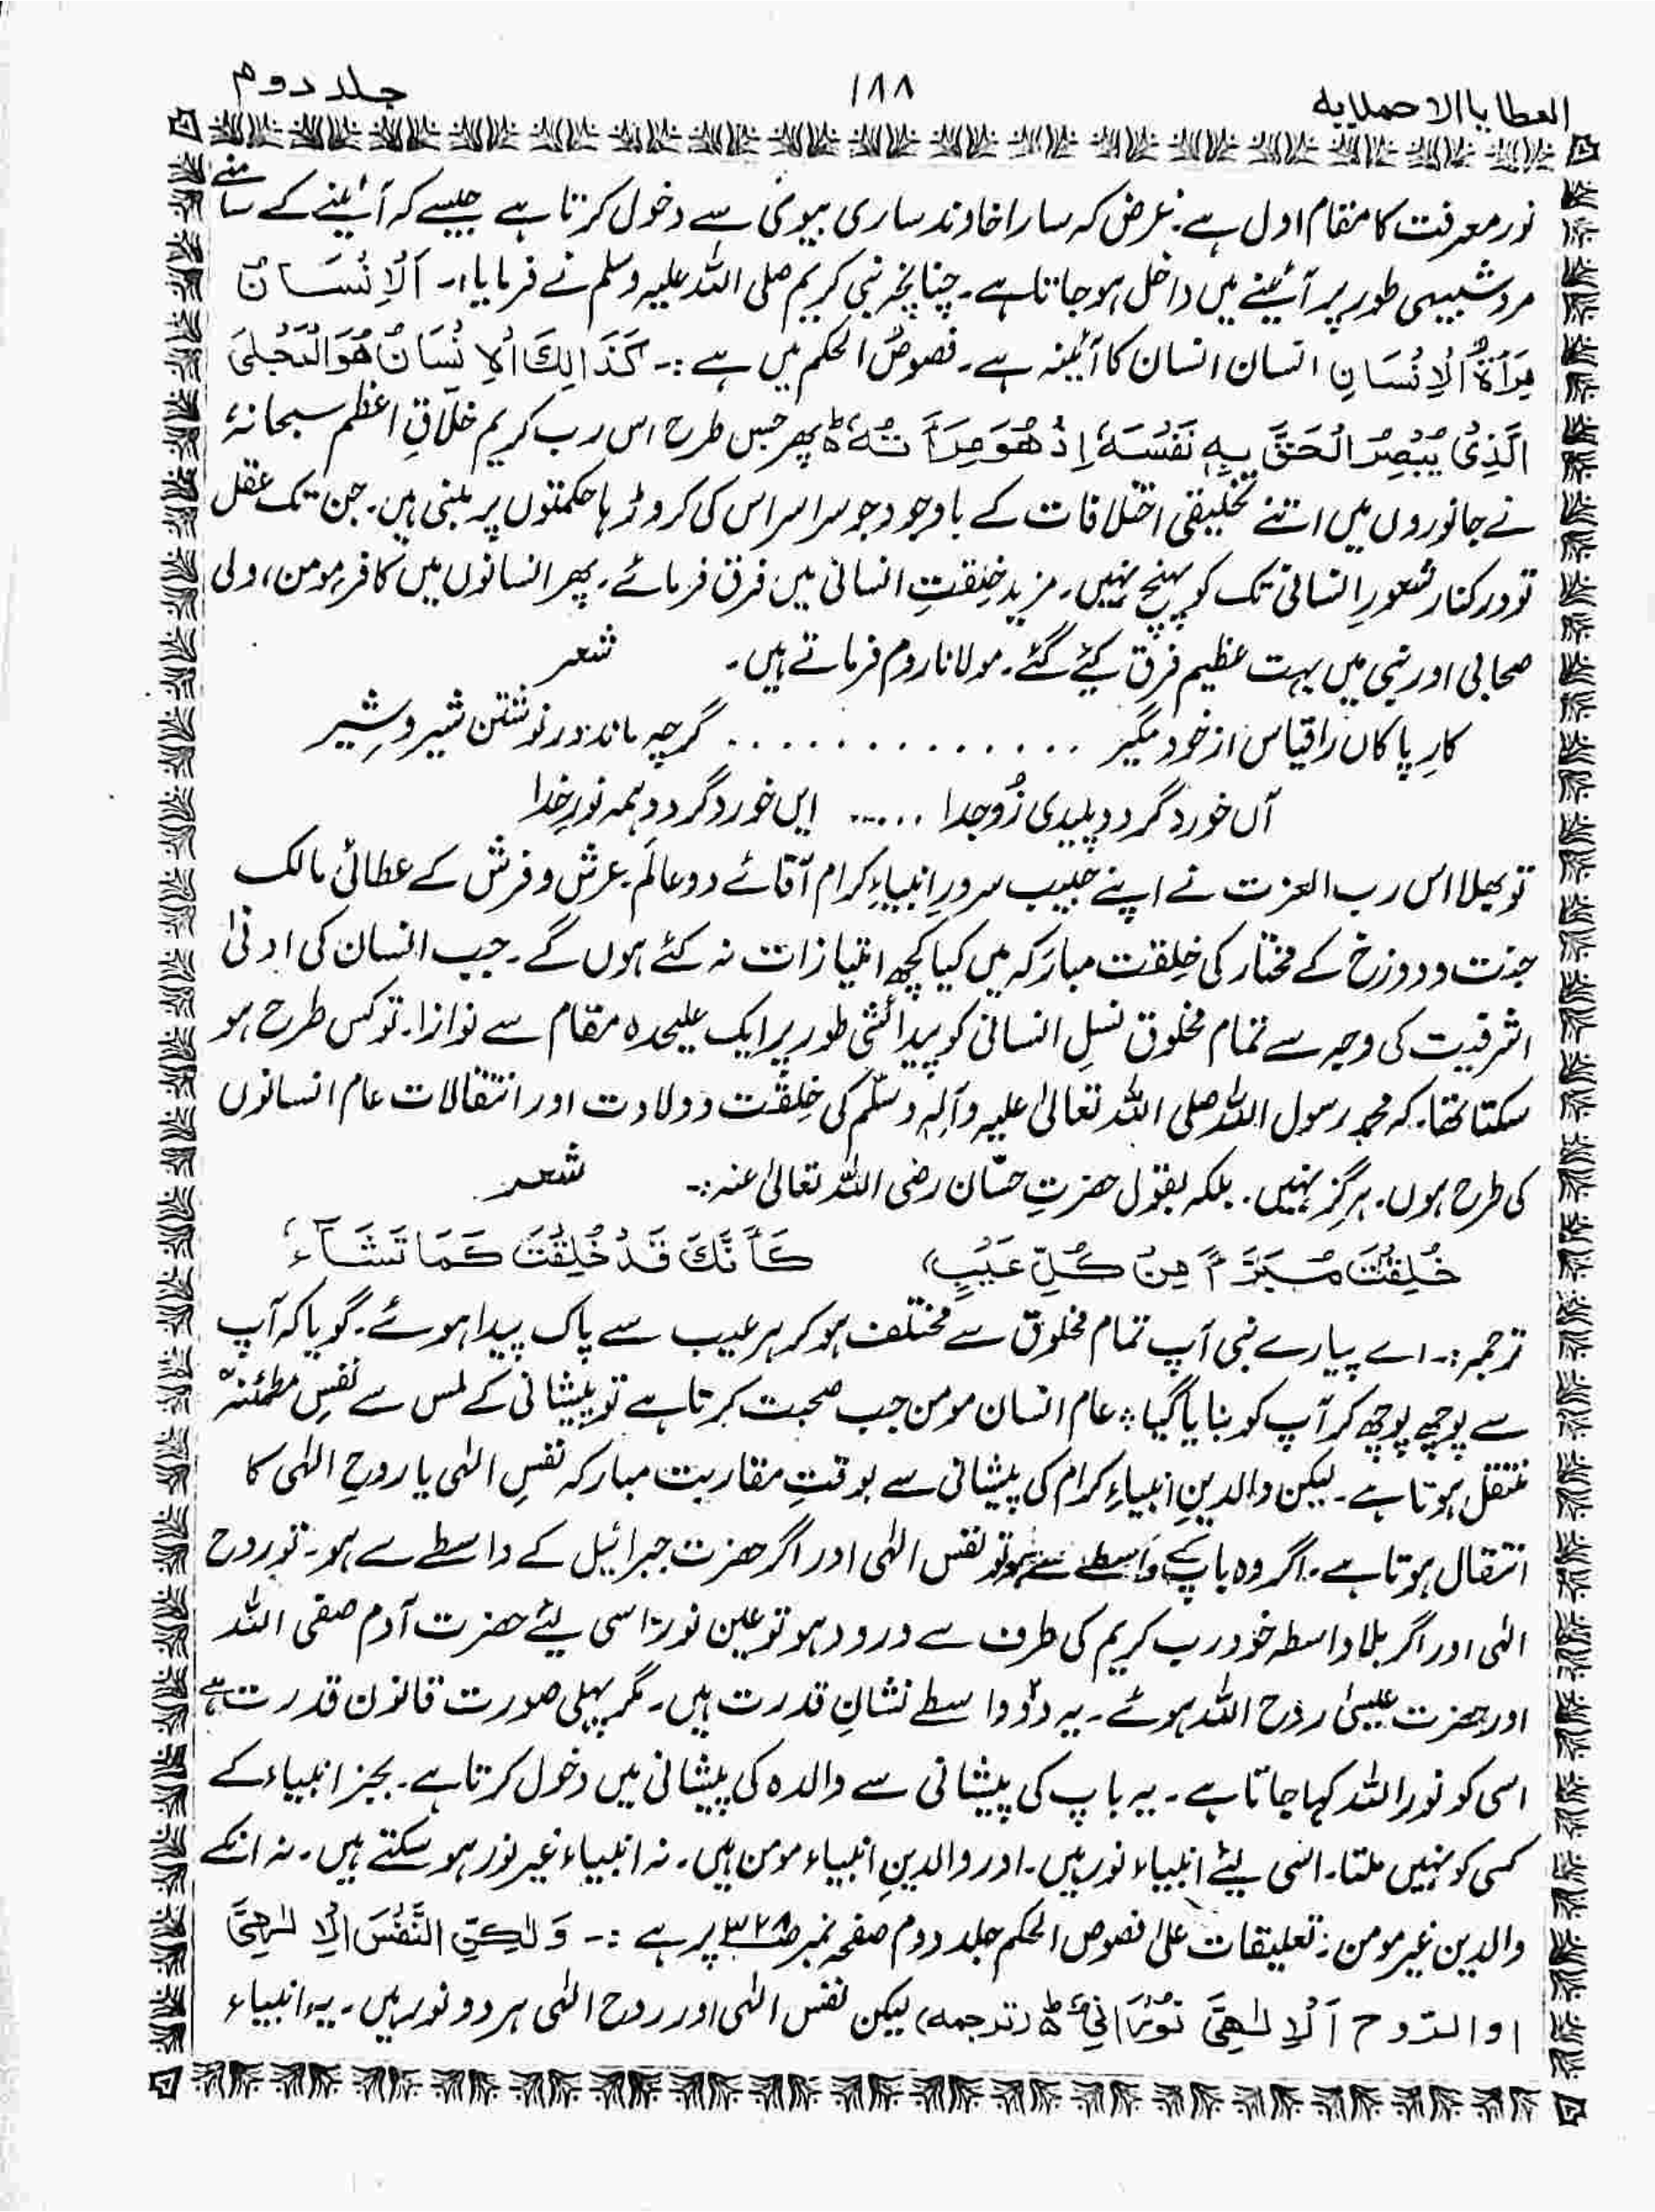 العطایا الاحمدیہ
۱۸۸
جلد دوم
نور معرفت کا مقام اول ہے۔ غرض کہ سارا خاوند ساری بیوی سے دخول کرتا ہے جیسے کہ آئینے کے سامنے
مرد شبیہی طور پر آئینے میں داخل ہو جاتا ہے۔ چنانچہ نبی کریم صلی اللہ علیہ وسلم نے فرمایا:۔ اَلْاِنْسَانُ
مِرَاۃُ الْاِنْسَانِ انسان انسان کا آئینہ ہے۔ فصوص الحکم میں ہے :۔ کَذَالِكَ الْاِنْسَانُ هُوَ الْمَجْلَی
الَّذِیْ یُبْصِرُ الْحَقَّ بِهٖ نَفْسَهٗ اِذْ هُوَ مِرَأَ تُهٗ ؕ پھر جس طرح اس رب کریم خلّاقِ اعظم سبحانہٗ
نے جانوروں میں اتنے تخلیقی اختلافات کے باوجود جو سراسر اس کی کروڑہا حکمتوں پر مبنی ہیں۔ جن تک عقل
تو درکنار شعورِ انسانی تک کو پہنچ نہیں۔ مزید خِلقتِ انسانی میں فرق فرمائے۔ پھر انسانوں میں کافر، مومن، ولی
صحابی اور نبی میں بہت عظیم فرق کیئے گئے۔ مولانا روم فرماتے ہیں۔ شعر
کارِ پاکاں را قیاس از خود مگیر ............... گرچہ ماند در نوشتن شیر و شِیر
آں خورد گردد پلیدی زُو جدا ...... ایں خورد گردد ہمہ نورِ خدا
تو بھلا اس رب العزت نے اپنے حبیب سرورِ انبیاءِ کرام آقائے دو عالَم۔ عرش و فرش کے عطائی مالک
جنت و دوزخ کے مختار کی خِلقت مبارَکہ میں کیا کچھ امتیازات نہ کئے ہوں گے۔ جب انسان کی ادنیٰ
اشرفیت کی وجہ سے تمام مخلوق نسلِ انسانی کو پیدائشی طور پر ایک علیحدہ مقام سے نوازا۔ تو کس طرح ہو
سکتا تھا۔ کہ محمد رسول اللہ صلی اللہ تعالیٰ علیہ وآلہٖ وسلّم کی خِلقت و ولادت اور انتقالات عام انسانوں
کی طرح ہوں۔ ہرگز نہیں۔ بلکہ بقول حضرتِ حسّان رضی اللہ تعالیٰ عنہ:۔ شعر
خُلِقْتَ مُبَرَّءً مِنْ کُلِّ عَیْبٍ، کَاَنَّكَ قَدْ خُلِقْتَ کَمَا تَشَآءُ
ترجمہ:۔ اے پیارے نبی آپ تمام مخلوق سے مختلف ہو کر ہر عیب سے پاک پیدا ہوئے۔ گویا کہ آپ
سے پوچھ پوچھ کر آپ کو بنایا گیا؞ عام انسان مومن جب صحبت کرتا ہے تو پیشانی کے لمس سے نفسِ مطمئنہ
منتقل ہوتا ہے۔ لیکن والدینِ انبیاءِ کرام کی پیشانی سے بوقتِ مقاربت مبارکہ نفسِ الٰہی یا روحِ الٰہی کا
انتقال ہوتا ہے۔ اگر وہ باپ کے واسطے سے ہو تو نفس الٰہی اور اگر حضرت جبرائیل کے واسطے سے ہو۔ تو روح
الٰہی اور اگر بلا واسطہ خود رب کریم کی طرف سے درود ہو تو عین نور۔ اسی لیئے حضرت آدم صفی اللہ
اور حضرت عیسیٰ روح اللہ ہوئے۔ یہ دوّ واسطے نشانِ قدرت ہیں۔ مگر پہلی صورت قانون قدرت ہے
اسی کو نور اللہ کہا جاتا ہے۔ یہ باپ کی پیشانی سے والدہ کی پیشانی میں دخول کرتا ہے۔ بجز انبیاء کے
کسی کو نہیں ملتا۔ اسی لیئے انبیاء نور ہیں۔ اور والدینِ انبیاء مومن ہیں۔ نہ انبیاء غیر نور ہو سکتے ہیں۔ نہ انکے
والدین غیر مومن: تعلیقات علیٰ فصوص الحکم جلد دوم صفحہ نمبر ۳۲۸ پر ہے :۔ وَلٰکِنِّ النَّفْسَ الْاِلٰهِیَّ
اوالرّوح اَلْاِلٰهِیَّ نُوْرَانِیٌّ ؕ (ترجمہ) لیکن نفس الٰہی اور روح الٰہی ہر دو نور ہیں۔ یہ انبیاء